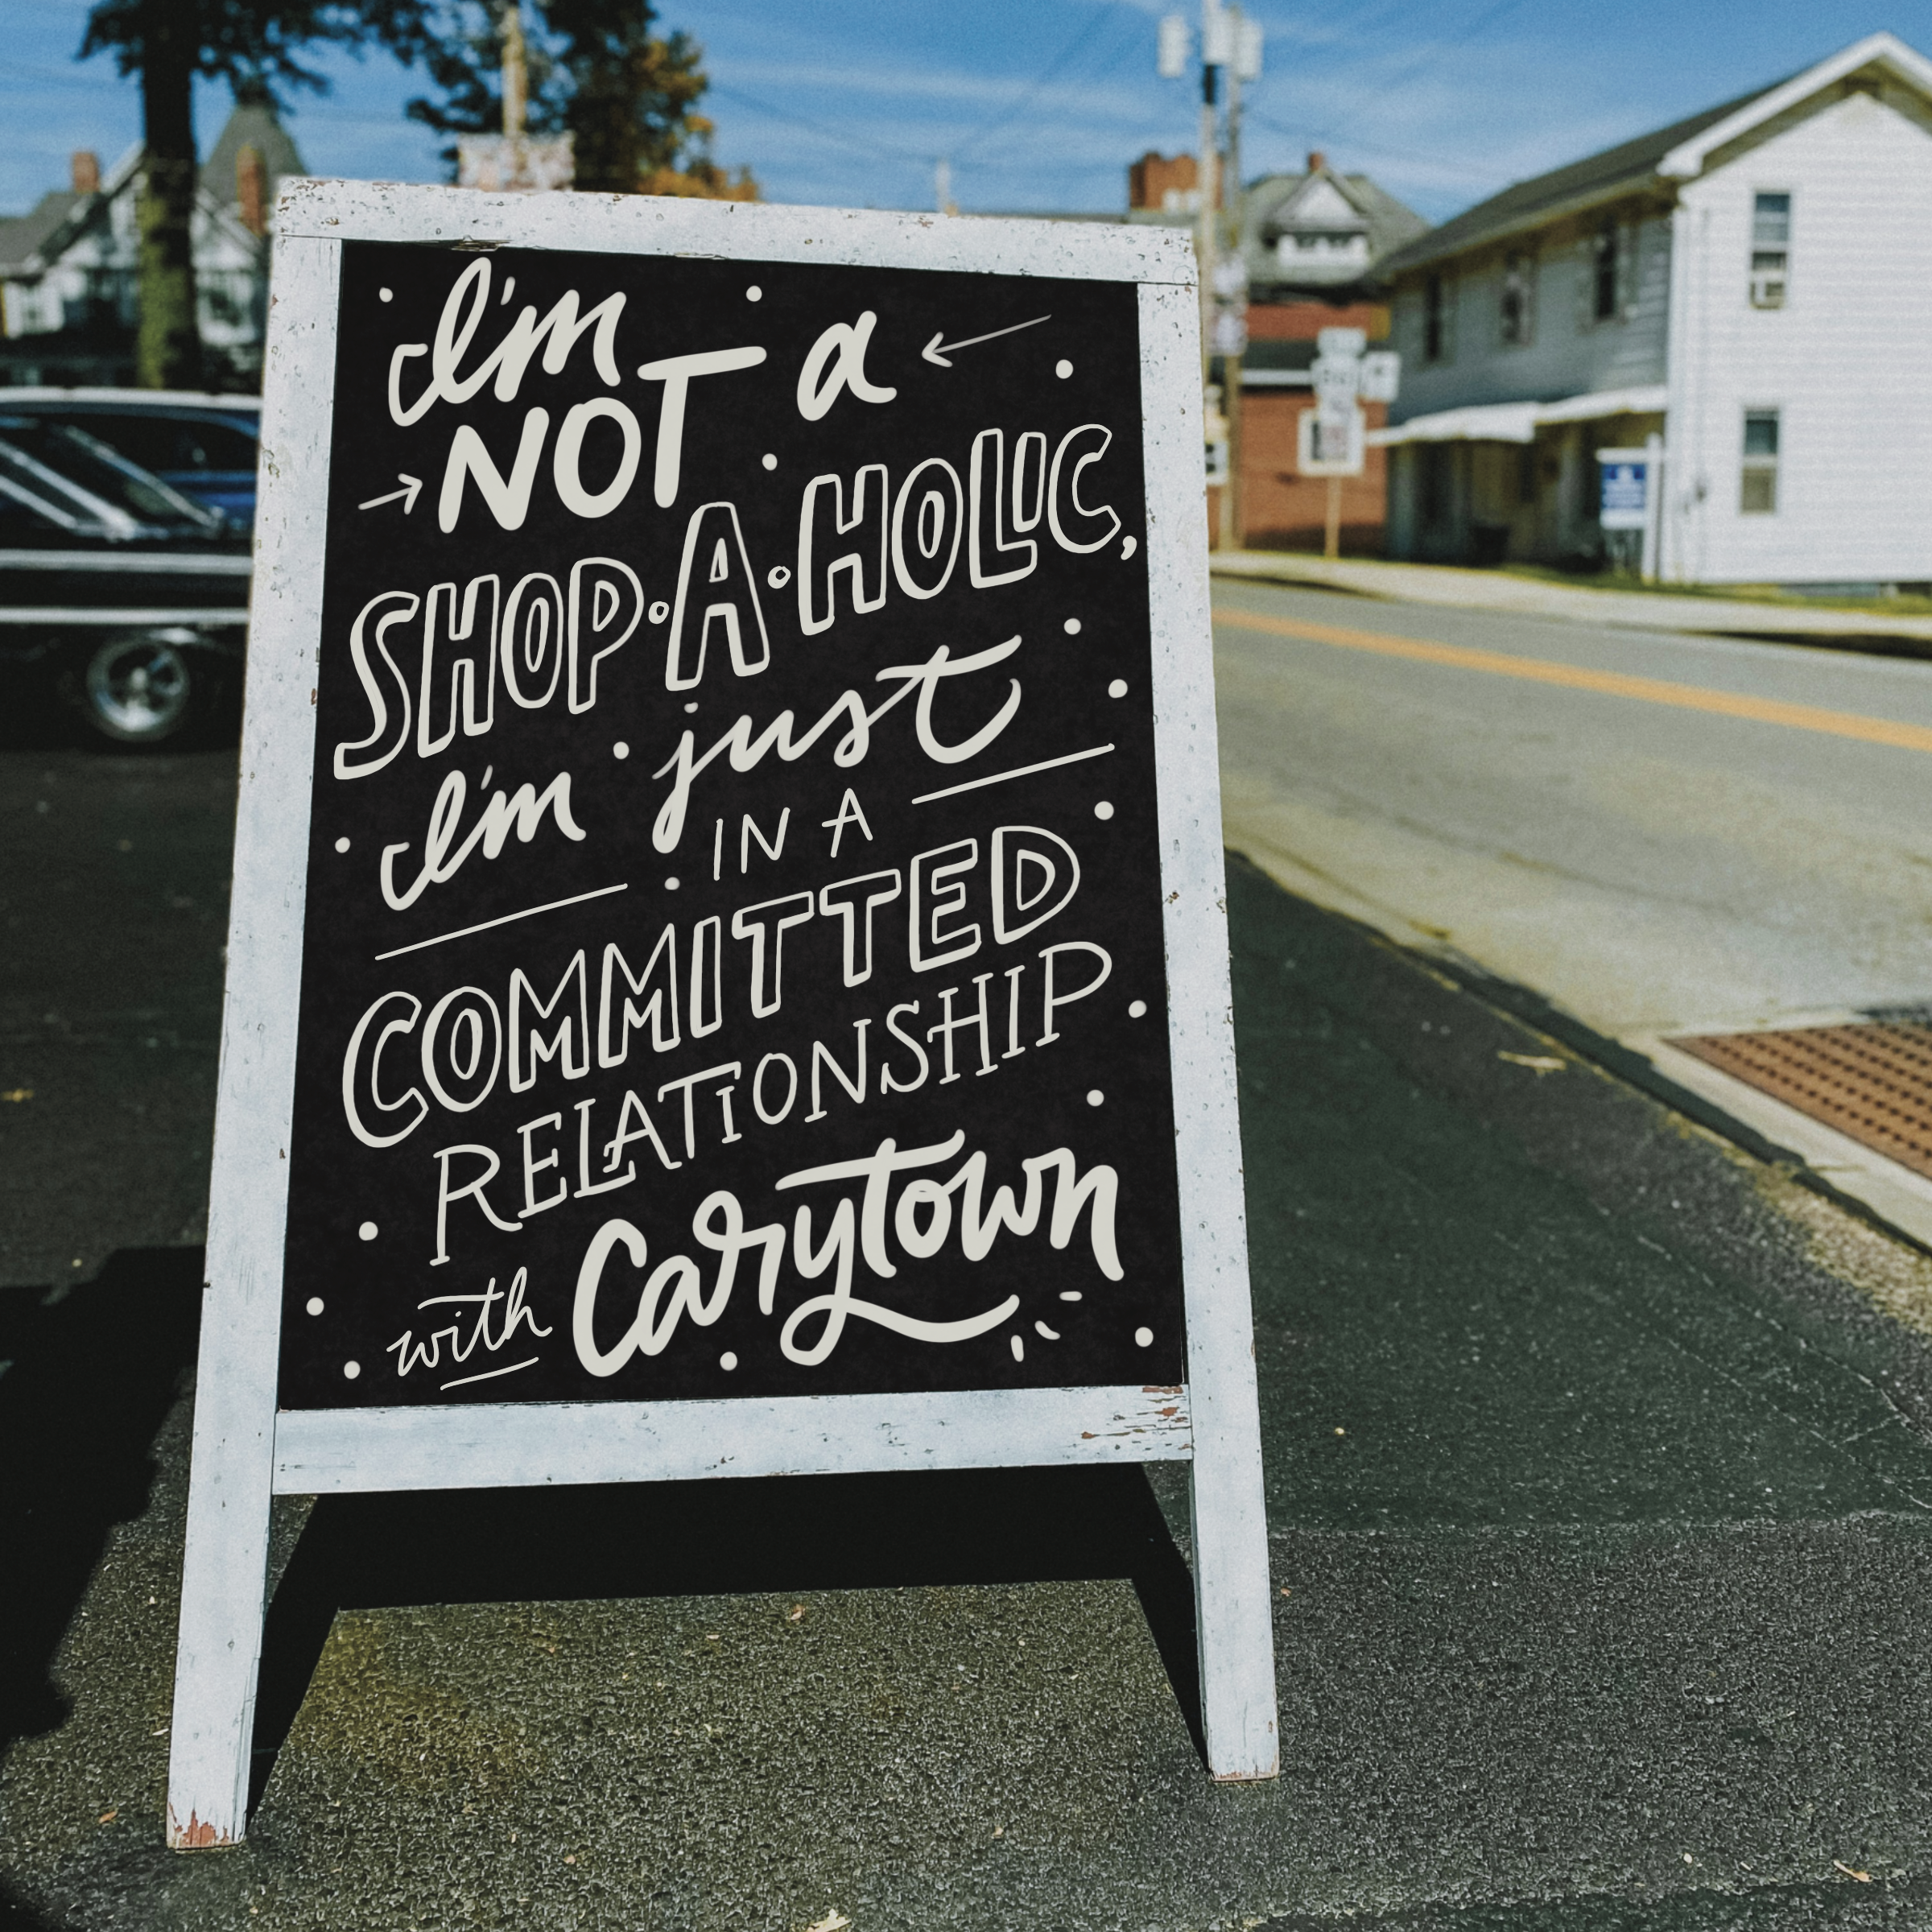 I'm
NOT a
SHOP·A·HOLIC,
I'm just
IN A
COMMITTED
RELATIONSHIP
with Carytown